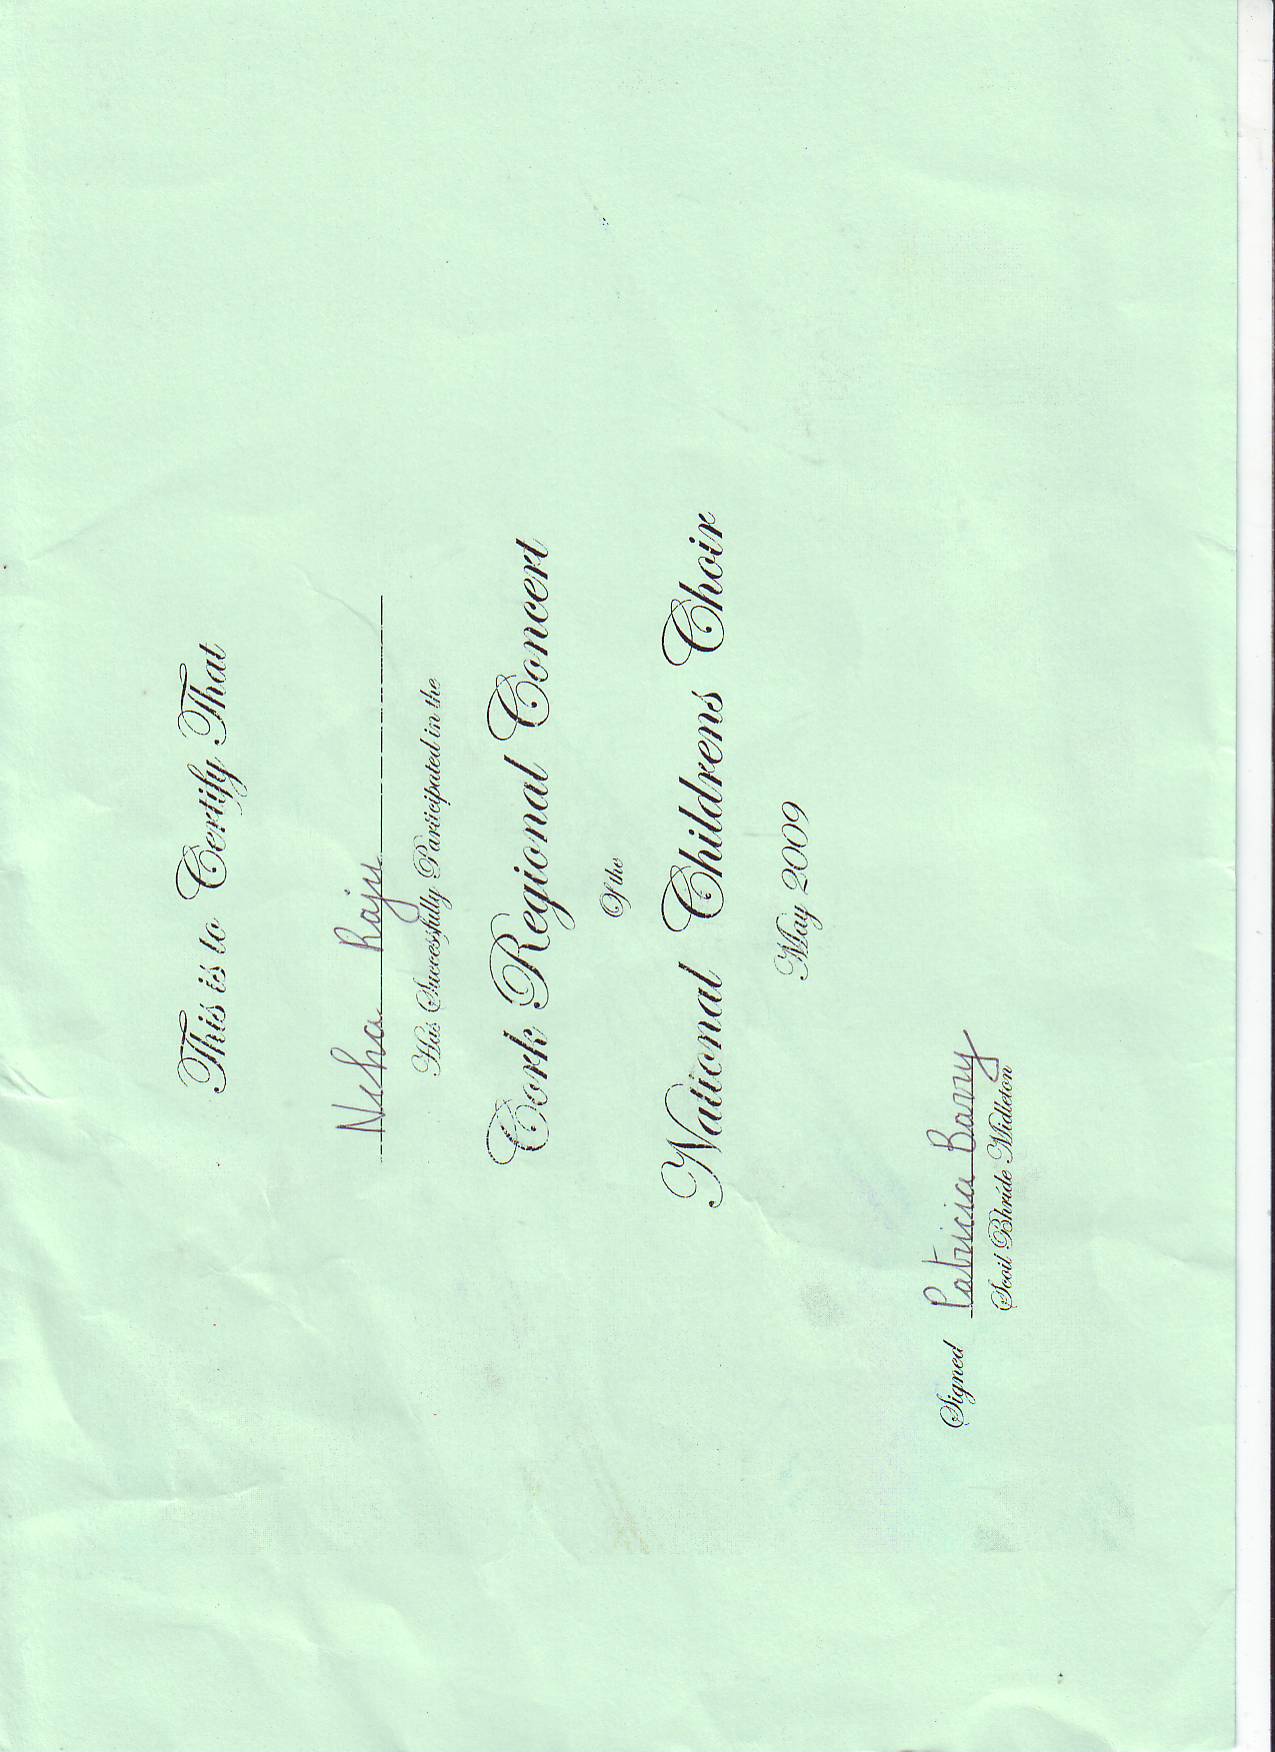 This is to Certify That
Neha Raju
Has Successfully Participated in the
Cork Regional Concert
Of the
National Childrens Choir
May 2009
Signed Patricia Barry
Scoil Bhríde Midleton